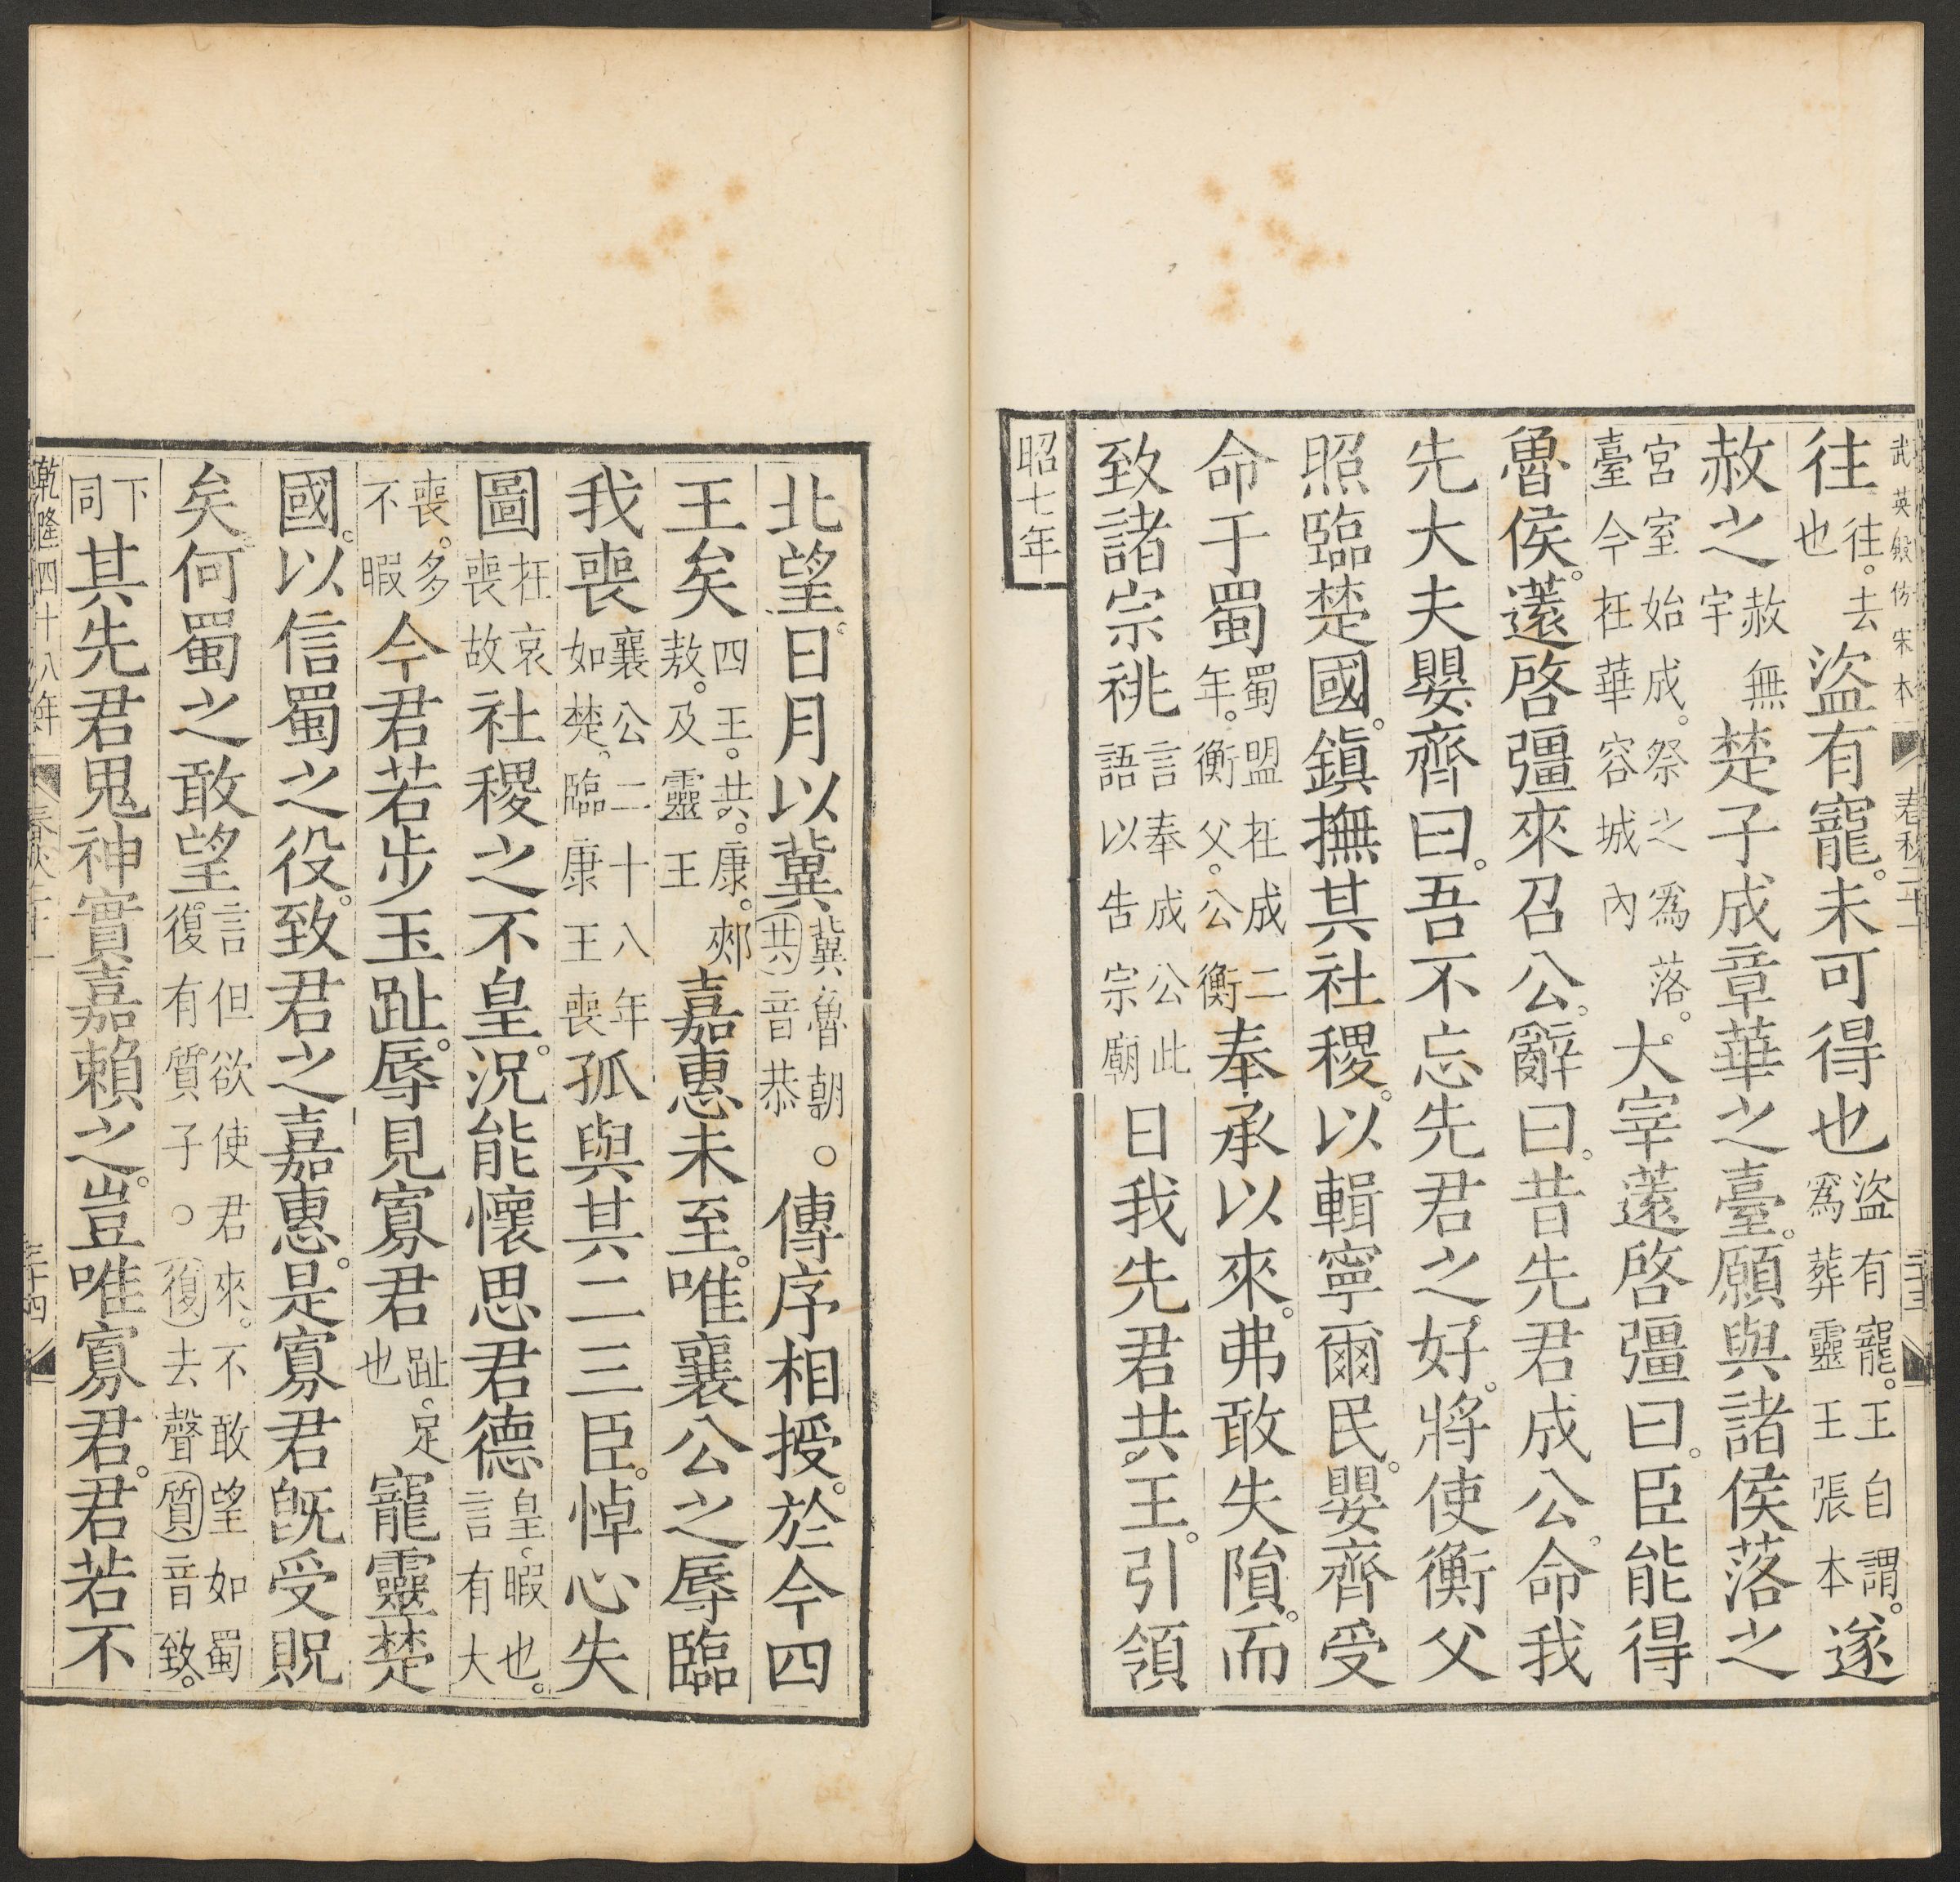 武英殿仿宋本 春秋二十一 三十三
往往。去也盜有寵。未可得也盜有寵。王自謂。爲葬靈王張本遂
赦之赦無宇楚子成章華之臺。願與諸侯落之
宮室始成。祭之爲落。臺今在華容城內大宰薳啓彊曰。臣能得
魯侯。薳啓彊來召公。辭曰。昔先君成公。命我
先大夫嬰齊曰。吾不忘先君之好。將使衡父
照臨楚國。鎮撫其社稷。以輯寧爾民。嬰齊受
命于蜀蜀盟在成二年。衡父。公衡奉承以來。弗敢失隕。而
致諸宗祧言奉成公此語以告宗廟曰我先君共王。引領
昭七年
北望。日月以冀冀魯朝。共音恭○傳序相授。於今四
王矣四王。共。康。郟敖。及靈王嘉惠未至。唯襄公之辱臨
我喪襄公二十八年如楚。臨康王喪孤與其二三臣。悼心失
圖在哀喪故社稷之不皇。況能懷思君德皇。暇也。言有大
喪。多不暇今君若步玉趾。辱見寡君趾。足也寵靈楚
國。以信蜀之役。致君之嘉惠。是寡君既受貺
矣何蜀之敢望言但欲使君來。不敢望如蜀復有質子○復去聲質音致。
下同其先君鬼神實嘉賴之。豈唯寡君。君若不
乾隆四十八年 春秋二十一 三十四